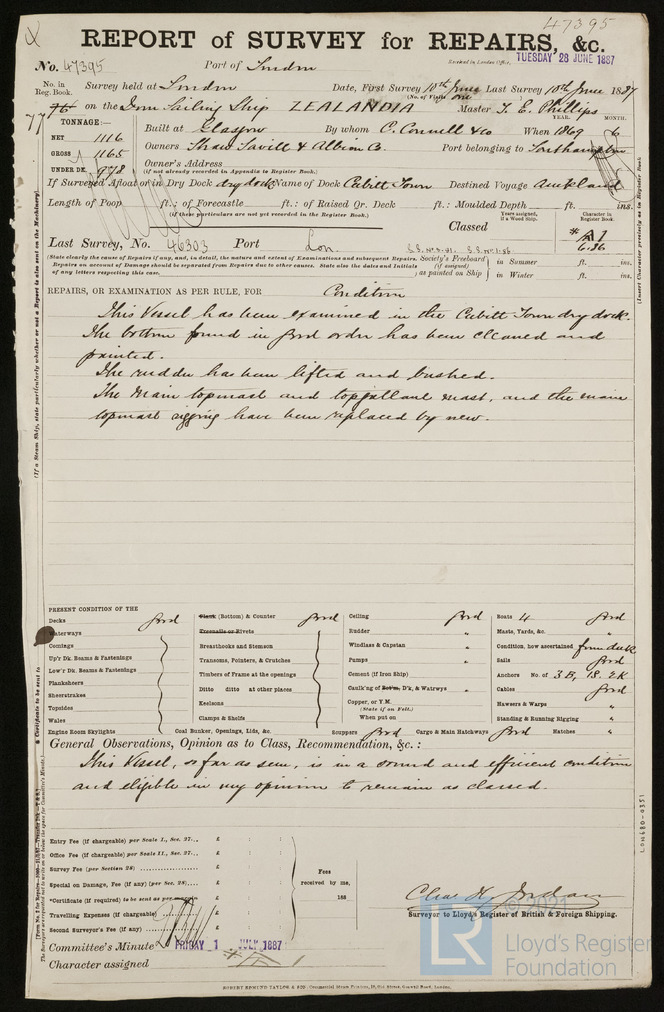 47395
REPORT of SURVEY for REPAIRS, &c.
No. 47395 Port of London Received in London Office, TUESDAY 28 JUNE 1887
No. in Reg. Book. Survey held at London Date, First Survey 10th June Last Survey 10th June 1887
(No. of Visits one)
76 on the Iron Sailing Ship ZEALANDIA Master T. E. Phillips
77
TONNAGE:— Built at Glasgow By whom C. Connell & Co When 1869 6
YEAR. MONTH.
NET 1116
GROSS 1165 Owners Shaw Savill & Albion Co. Port belonging to Southampton
UNDER DK. 978 Owner's Address
(if not already recorded in Appendix to Register Book.)
If Surveyed Afloat or in Dry Dock dry dock Name of Dock Cubitt Town Destined Voyage Auckland
Length of Poop ft.: of Forecastle ft.: of Raised Qr. Deck ft.: Moulded Depth ft. ins.
(if these particulars are not yet recorded in the Register Book.)
Classed
Years assigned, if a Wood Ship.
Character in Register Book.
A1
6.86
Last Survey, No. 46303 Port Lon.
(State clearly the cause of Repairs if any, and, in detail, the nature and extent of Examinations and subsequent Repairs.
Repairs on account of Damage should be separated from Repairs due to other causes. State also the dates and Initials
of any letters respecting this case.
Society's Freeboard (if assigned) as painted on Ship in Summer ft. ins.
in Winter ft. ins.
REPAIRS, OR EXAMINATION AS PER RULE, FOR Condition
This Vessel has been examined in the Cubitt Town dry dock.
The bottom found in good order has been cleaned and
painted.
The rudder has been lifted and bushed.
The Main topmast and topgallant mast, and the main
topmast rigging have been replaced by new.
PRESENT CONDITION OF THE
Decks good
Waterways
Comings
Up'r Dk. Beams & Fastenings
Low'r Dk. Beams & Fastenings
Planksheers
Sheerstrakes
Topsides
Wales
Engine Room Skylights
Plank (Bottom) & Counter good
Treenails or Rivets
Breasthooks and Stemson
Transoms, Pointers, & Crutches
Timbers of Frame at the openings
Ditto ditto at other places
Keelsons
Clamps & Shelfs
Coal Bunker, Openings, Lids, &c.
Ceiling good
Rudder "
Windlass & Capstan "
Pumps "
Cement (if Iron Ship)
Caulk'ng of Bot'm, D'k, & Watrwys "
Copper, or Y.M.
(State if on Felt.)
When put on
Scuppers good Cargo & Main Hatchways good Hatches "
Boats 4 good
Masts, Yards, &c. "
Condition, how ascertained from deck
Sails good
Anchors No. of 3 B, 1S. 2K
Cables good
Hawsers & Warps "
Standing & Running Rigging "
General Observations, Opinion as to Class, Recommendation, &c.:
This Vessel, so far as seen, is in a sound and efficient condition
and eligible in my opinion to remain as classed.
Entry Fee (if chargeable) per Scale I., Sec. 27... £ : :
Office Fee (if chargeable) per Scale II., Sec. 27... £ : :
Survey Fee (per Section 28) £ : :
Special on Damage, Fee (if any) (per Sec. 28) £ : :
*Certificate (if required) to be sent as per margin £ : :
Travelling Expenses (if chargeable) £ : :
Second Surveyor's Fee (if any) £ : :
Fees received by me, 188
Chas H Jordan
Surveyor to Lloyd's Register of British & Foreign Shipping.
Committee's Minute FRIDAY 1 JULY 1887
Character assigned A1
ROBERT EDMUND TAYLOR & SON
© 2021
LR
Lloyd's Register
Foundation
LON680-0351